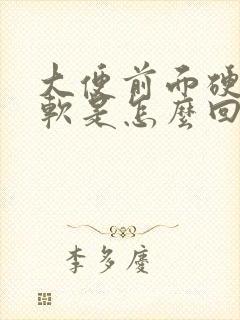 大便前而硬
軟是怎麼回
李多慶